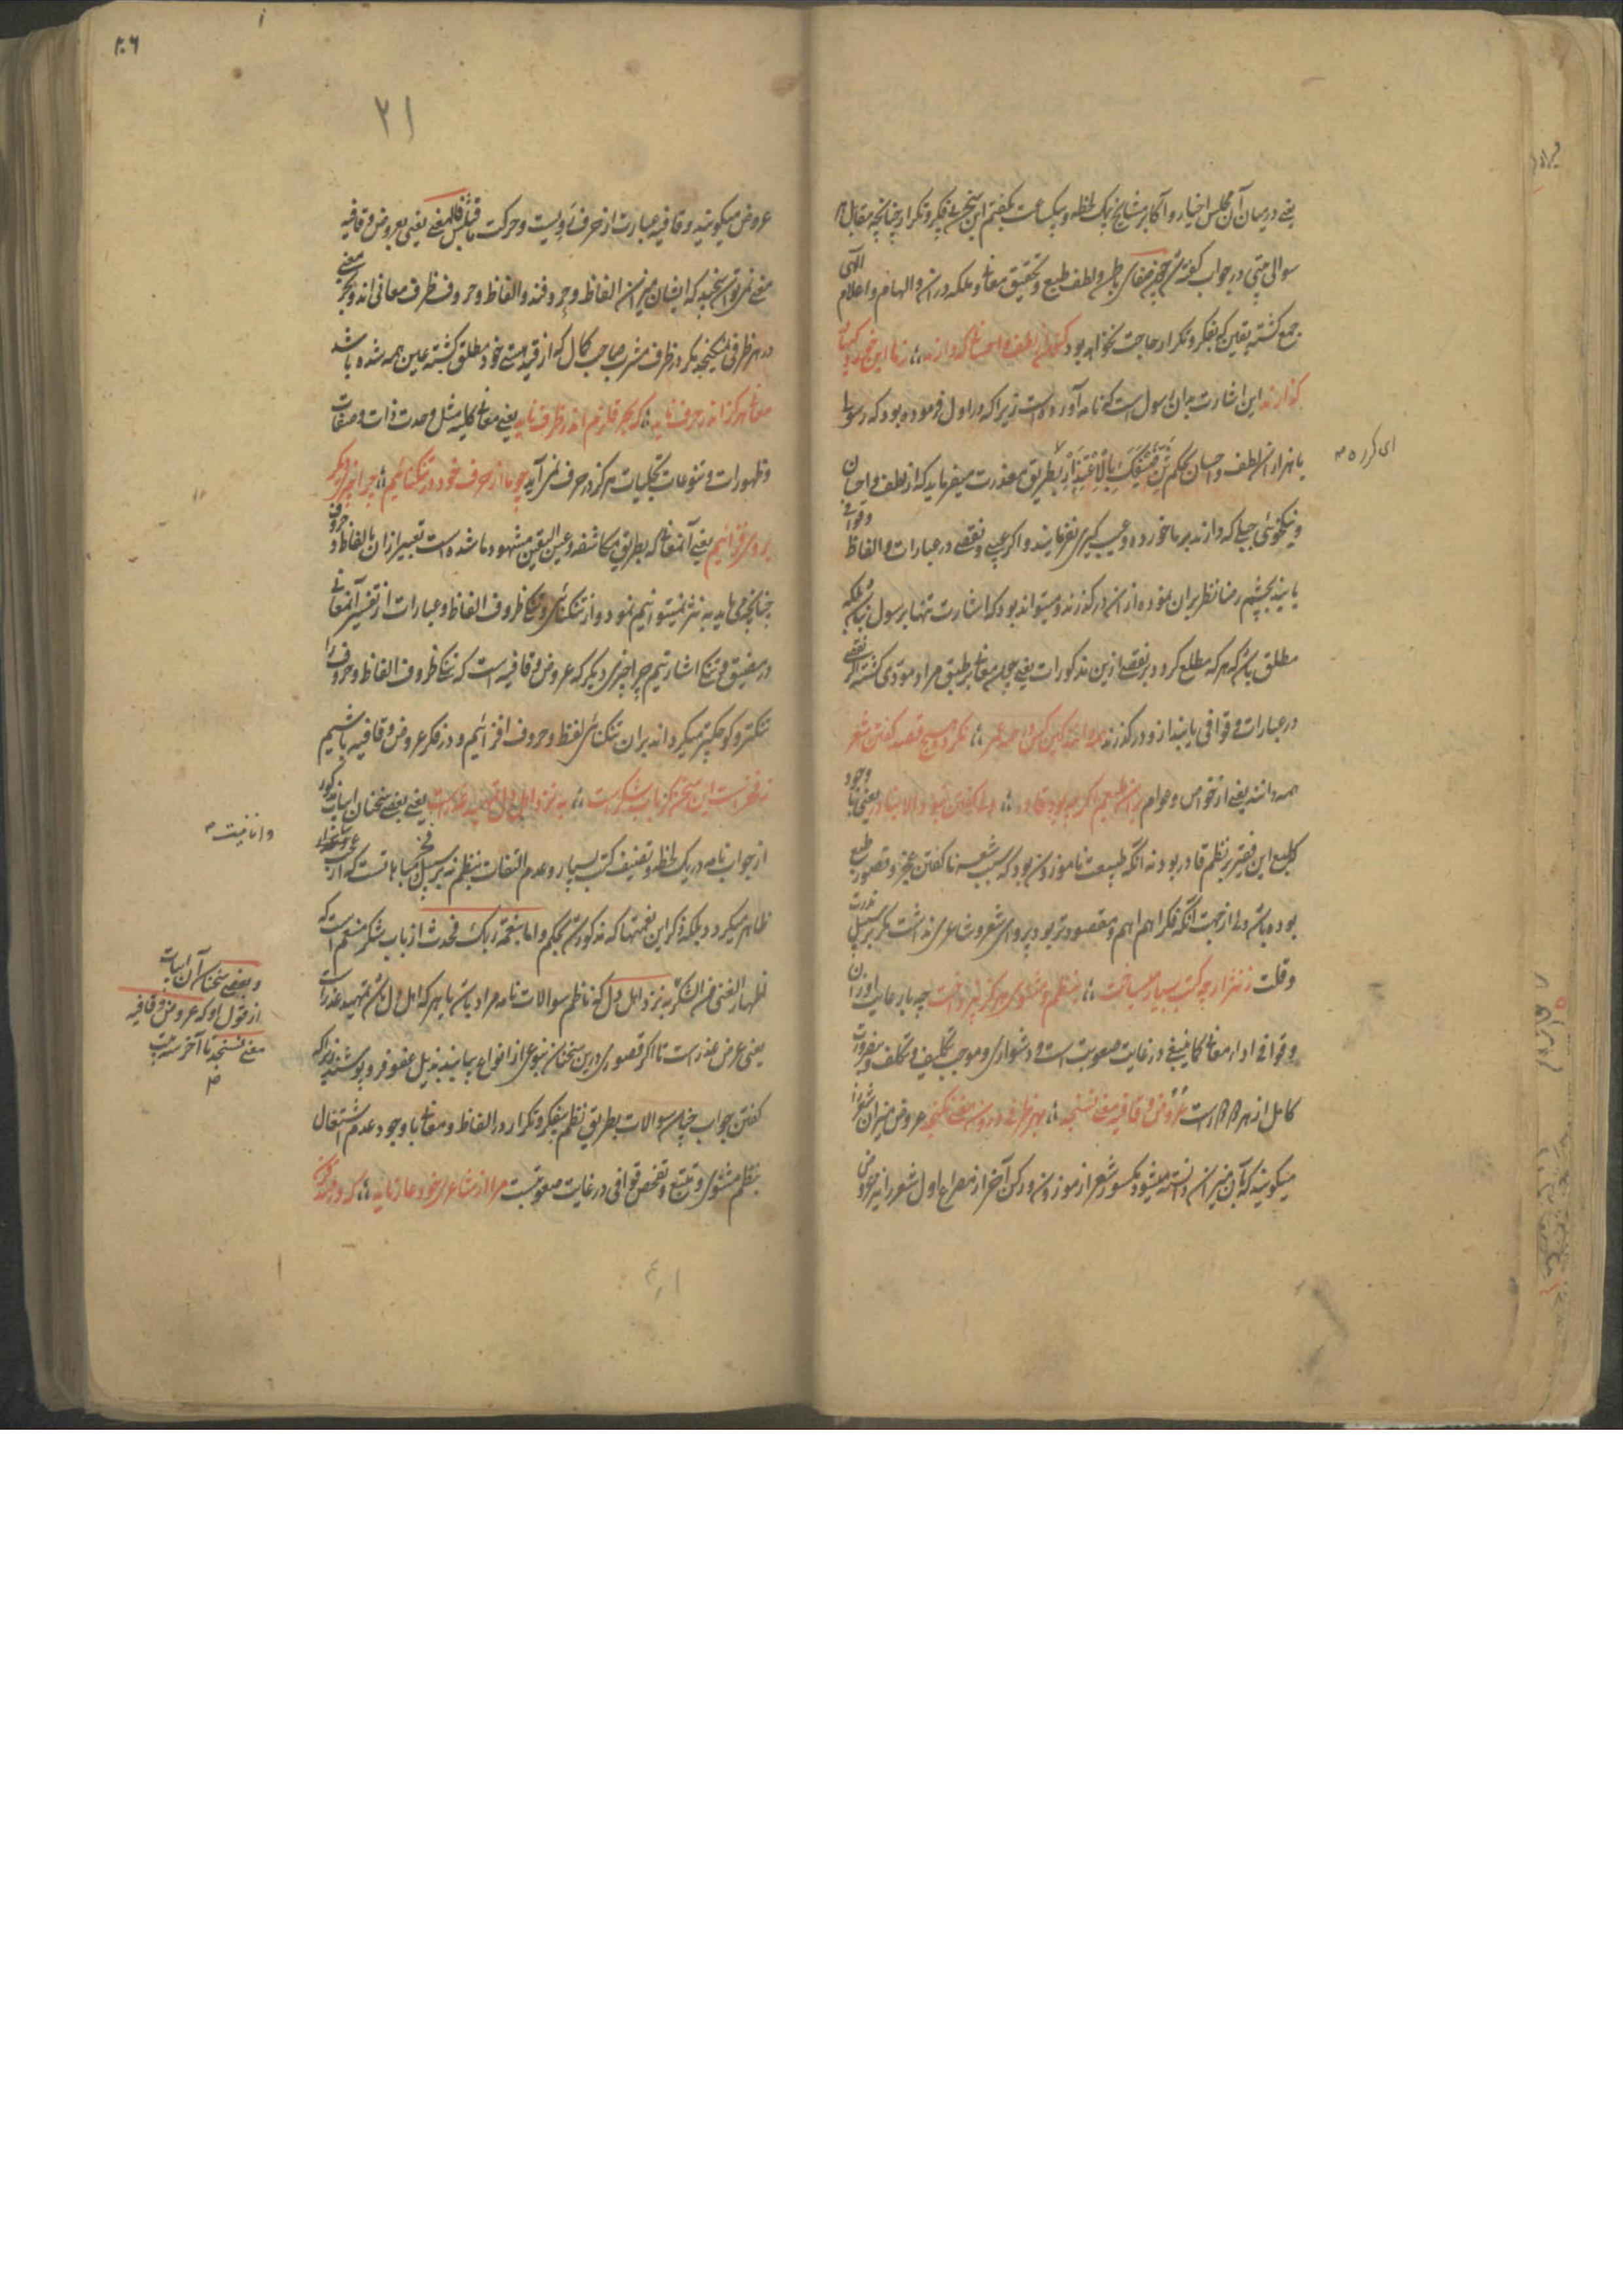 یعنی در میان آن مجلس اخیار و آکابر مشایخ بیک لحظه و بیکساعت بگفتم این سخن بی فکر و تکرار چنانچه مقابل هر
سوالی بیتی در جواب گفته شد چون صفای باطن و لطف طبع و تحقیق معانی و ملکه در آن و الهام و اعلام الٓهی
جمع گشته یقین که بفکر و تکرار حاجت نخواهد بود کنون از لطف و احسانی که دارند ؛ ز ما این خردگیها در
گذارند این اشارت بدان رسول است که نامه آورده است زیرا که در اول فرموده بود که رسولی
با هزاران لطف و احسان بحکم بطریق معذرت میفرماید که از لطف و احسان
و نیکخوئی جبلی که دارند بر ما خورده و عیب گیری نفرمایند و اگر عیبی و نقصی در عبارات و الفاظ و قوافی
یابند بچشم رضا نظر بر آن نموده از آن درگذرند و میتواند بود که اشارت تنها برسول نباشد بلکه
مطلق باشد که هر که مطلع گردد بر نقصی ازین مذکورات یعنی چون معانی بر طبق مراد مودی گشته اگر نقصی
در عبارات و قوافی یابند از و درگذرند همه دانند کین کس در همه عمر ؛ نکرده هیچ قصد گفتن شعر
همه دانند یعنی از خواص و عوام بر آن طبعم اگر چه بود قادر ؛ ولی گفتن نبود الا بنادر یعنی با وجود
که طبع این فقیر بر نظم قادر بود نه آنکه طبیعت ناموزون بود که سبب شعر ناگفتن عجز و قصور طبع
بوده باشد ولی از جهت آنکه فکر اهم اهم و مقصود تر بود پروای شعر و شاعری نداشت مگر بر سبیل ندرت
و قلت ز نثر ار چه کتب بسیار میساخت ؛ بنظم مثنوی هرگز نپرداخت چه با رعایت اوزان
و قوافی ادا معانی کما ینبغی در غایت صعوبت است و دشواری و موجب تکلیف و تکلف و
کامل از هر دو است عروض و قافیه معنی نسنجد ؛ بهر ظرفی درون معنی نگنجد عروض میزان شعر را
میگویند که بآن میزان دانسته میشود مکسور شعر از موزون و رکن آخر از مصراع اول شعر را نیز عروض
ای گرر ه ص
۲۰۶
۲۱
عروض میگویند و قافیه عبارت از حرف رویست و حرکت ماقبلش یعنی بعروض و قافیه
معنی نمی توان سنجید که ایشان میزان الفاظ و حروفند و الفاظ و حروف ظرف معانی اند و بحر معنی
در هر ظرفی نمیگنجد مگر در ظرف مشرب صاحب کمال که از قید هستی خود مطلق گشته عین همه شده باشد
معانی هرگز اندر حرف ناید ؛ که بحر قلزم اندر ظرف ناید یعنی معانی کلیه مثل وحدت ذات و صفات
و ظهورات و تنوعات تجلیات هرگز در حرف نمی آید چو ما از حرف خود در تنگنائیم ؛ چرا چیز دگر
بر وی فزائیم یعنی آنمعانی که بطریق مکاشفه و عین الیقین مشهود ما شده است تعبیر از آن بالفاظ و حروف
چنانچه می باید به نثر نمیتوانیم نمود و از تنگنائی و تنگی ظروف الفاظ و عبارات از تفسیر آن معانی
در مضیق و تنگ اشارتیم چرا چیزی دیگر که عروض و قافیه است که تنگی ظروف الفاظ و حروف را
تنگتر و کوچکتر میگرداند بر آن تنگنای لفظ و حروف افزائیم و در فکر عروض و قافیه باشیم
نه فخرست این سخن کز باب شکرست ؛ به نزد اهل دل تمهید عذرست یعنی بعضی سخنان ابیات مذکور
از جواب نامه در یک لحظه و تصنیف کتب بسیار و عدم التفات بنظم نه بر سبیل فخر و مباهاتست که از آن
ظاهر میگردد بلکه ذکر این نعمتها که مذکور شد بحکم و اما بنعمة ربک فحدث از باب شکر منعم است که
اظهار الغنی من الشکر به نزد اهل دل که ناظم سوالات نامه مراد باشد یا هر که اهل دل باشد تمهید عذر است
یعنی عرض عذر است تا اگر قصوری درین سخنان بنوعی از انواع بیابند بذیل عفو فرو پوشند زیرا که
گفتن جواب چنین سوالات بطریق نظم بیفکر و تکرار در الفاظ و معانی با وجود عدم اشتغال
بنظم مثنوی و تتبع و تفحص قوافی در غایت صعوبتست مرا از شاعری خود عار ناید ؛ که در صد قرن
و انانیت ص
و بعضی سخنان آن ابیات
از قول او که عروض و قافیه
معنی نسنجد تا آخر سه بیت
ص